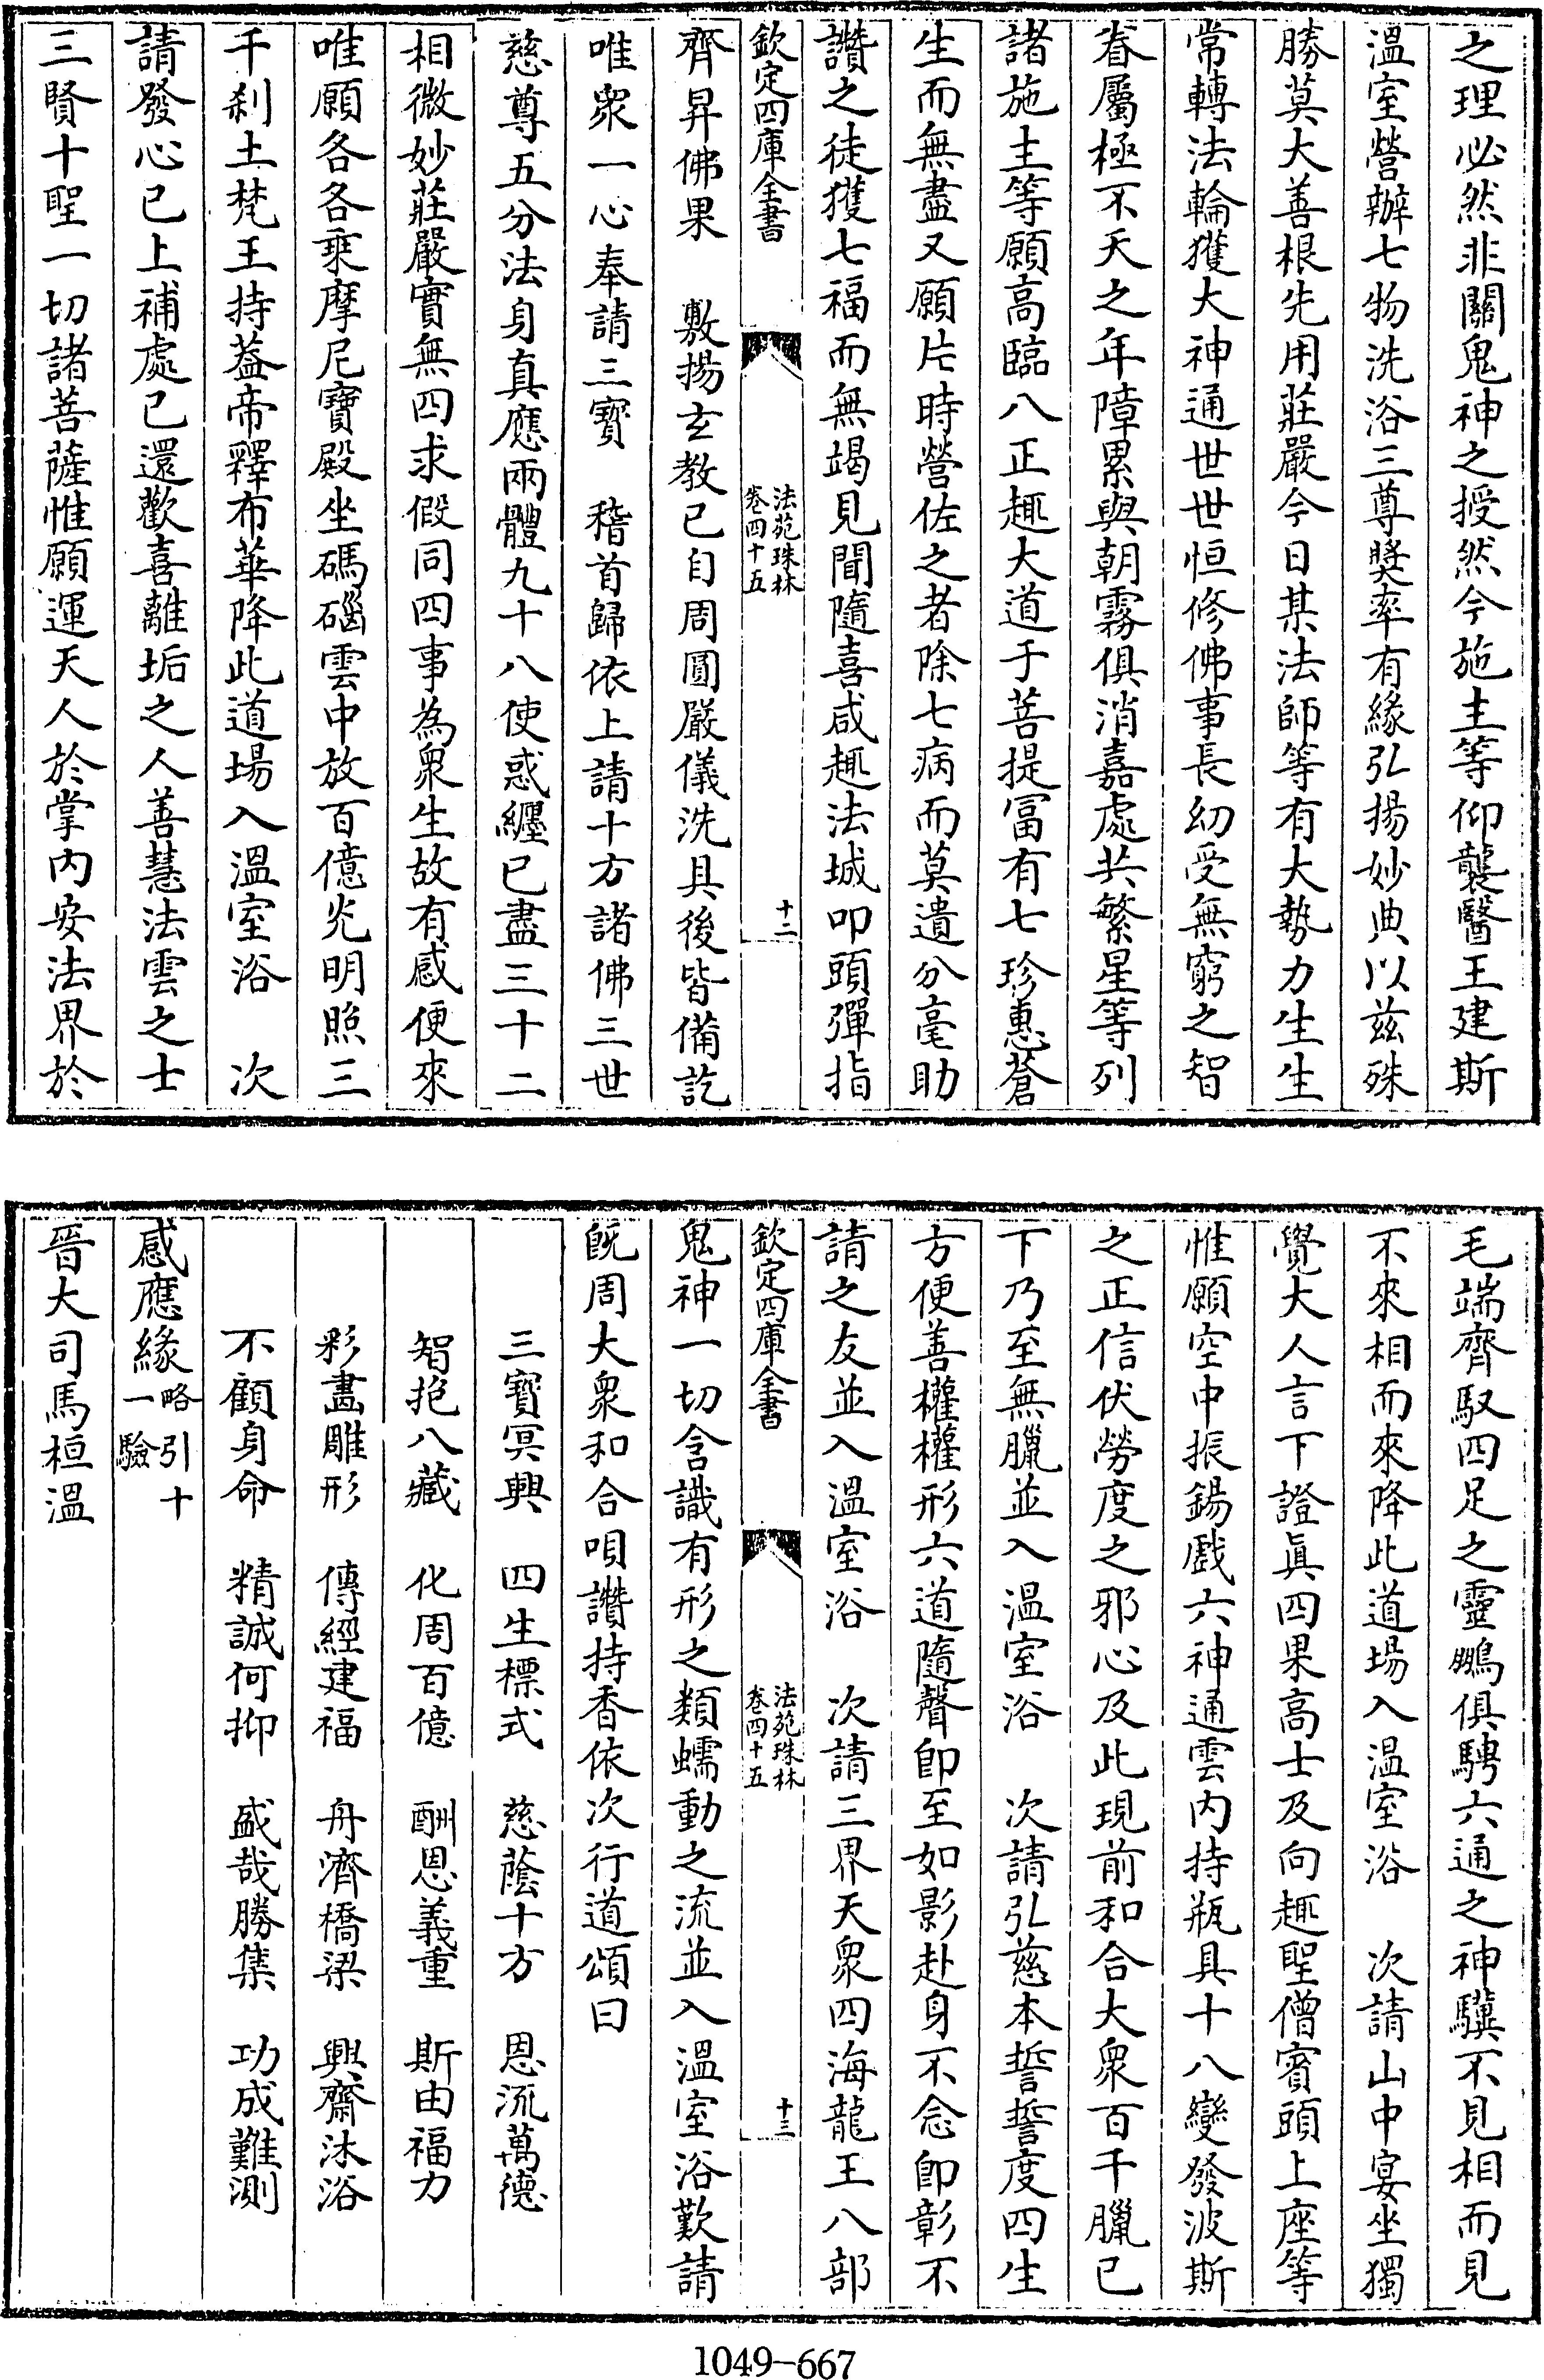 之理必然非關鬼神之授然今施主等仰襲醫王建斯
溫室營辦七物洗浴三尊奬率有緣弘揚妙典以兹殊
勝莫大善根先用莊嚴今日某法師等有大勢力生生
常轉法輪獲大神通世世恒修佛事長幼受無窮之智
眷屬極不夭之年障累與朝霧俱消嘉處共繁星等列
諸施主等願高臨八正趣大道于菩提富有七珍惠蒼
生而無盡又願片時營佐之者除七病而莫遺分毫助
讚之徒獲七福而無竭見聞隨喜咸趣法城叩頭彈指
欽定四庫全書
法苑珠林
卷四十五
十二
齊昇佛果　敷揚玄教已自周圓嚴儀洗具後皆備訖
唯衆一心奉請三寶　稽首歸依上請十方諸佛三世
慈尊五分法身真應兩體九十八使惑纏已盡三十二
相微妙莊嚴實無四求假同四事為衆生故有感便來
唯願各各乗摩尼寶殿坐碼碯雲中放百億光明照三
千刹土梵王持葢帝釋布華降此道場入溫室浴　次
請發心已上補處已還歡喜離垢之人善慧法雲之士
三賢十聖一切諸菩薩惟願運天人於掌内安法界於
毛端齊馭四足之靈鵬俱騁六通之神驥不見相而見
不來相而來降此道場入温室浴　次請山中宴坐獨
覺大人言下證真四果高士及向趣聖僧賓頭上座等
惟願空中振錫戲六神通雲内持瓶具十八變發波斯
之正信伏勞度之邪心及此現前和合大衆百千臘已
下乃至無臘並入溫室浴　次請弘慈本誓誓度四生
方便善權權形六道隨聲即至如影赴身不念即彰不
請之友並入溫室浴　次請三界天衆四海龍王八部
欽定四庫全書
法苑珠林
卷四十五
十三
鬼神一切含識有形之類蠕動之流並入溫室浴歎請
旣周大衆和合唄讚持香依次行道頌曰
三寶冥興　四生標式　慈蔭十方　恩流萬德
智抱八藏　化周百億　酬恩義重　斯由福力
彩畵雕形　傳經建福　舟濟橋梁　興齋沐浴
不顧身命　精誠何抑　盛哉勝集　功成難測
感應緣略引十一驗
晉大司馬桓溫
1049-667